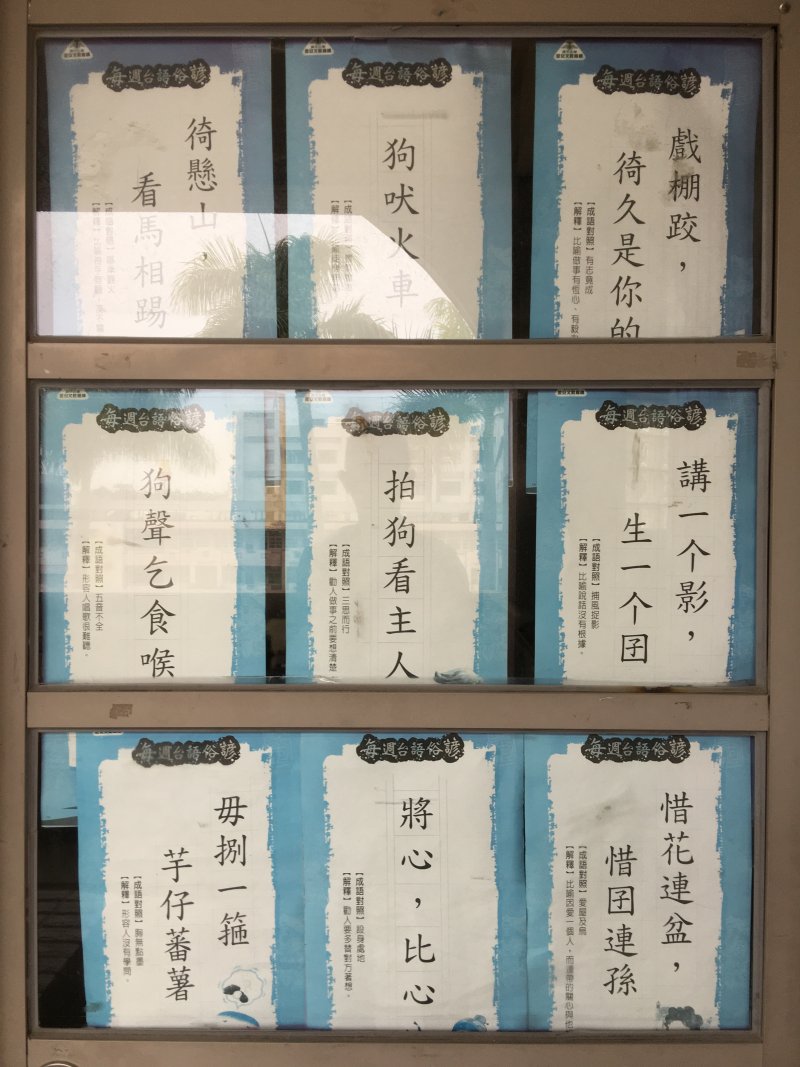 每週台語俗諺
徛懸山，
看馬相踢
【成語對照】
【解釋】
每週台語俗諺
狗吠火車
【解釋】
每週台語俗諺
戲棚跤，
徛久是你的
【成語對照】有志竟成
【解釋】比喻做事有恆心、有毅
每週台語俗諺
狗聲乞食喉
【成語對照】五音不全
【解釋】形容人唱歌很難聽。
每週台語俗諺
拍狗看主人
【成語對照】三思而行
【解釋】勸人做事之前要想清楚
每週台語俗諺
講一个影，
生一个囝
【成語對照】捕風捉影
【解釋】比喻說話沒有根據。
每週台語俗諺
毋捌一箍
芋仔蕃薯
【成語對照】胸無點墨
【解釋】形容人沒有學問。
每週台語俗諺
將心，比心
【成語對照】設身處地
【解釋】勸人要多替對方著想。
每週台語俗諺
惜花連盆，
惜囝連孫
【成語對照】愛屋及烏
【解釋】比喻因愛一個人，而連帶的關心與他